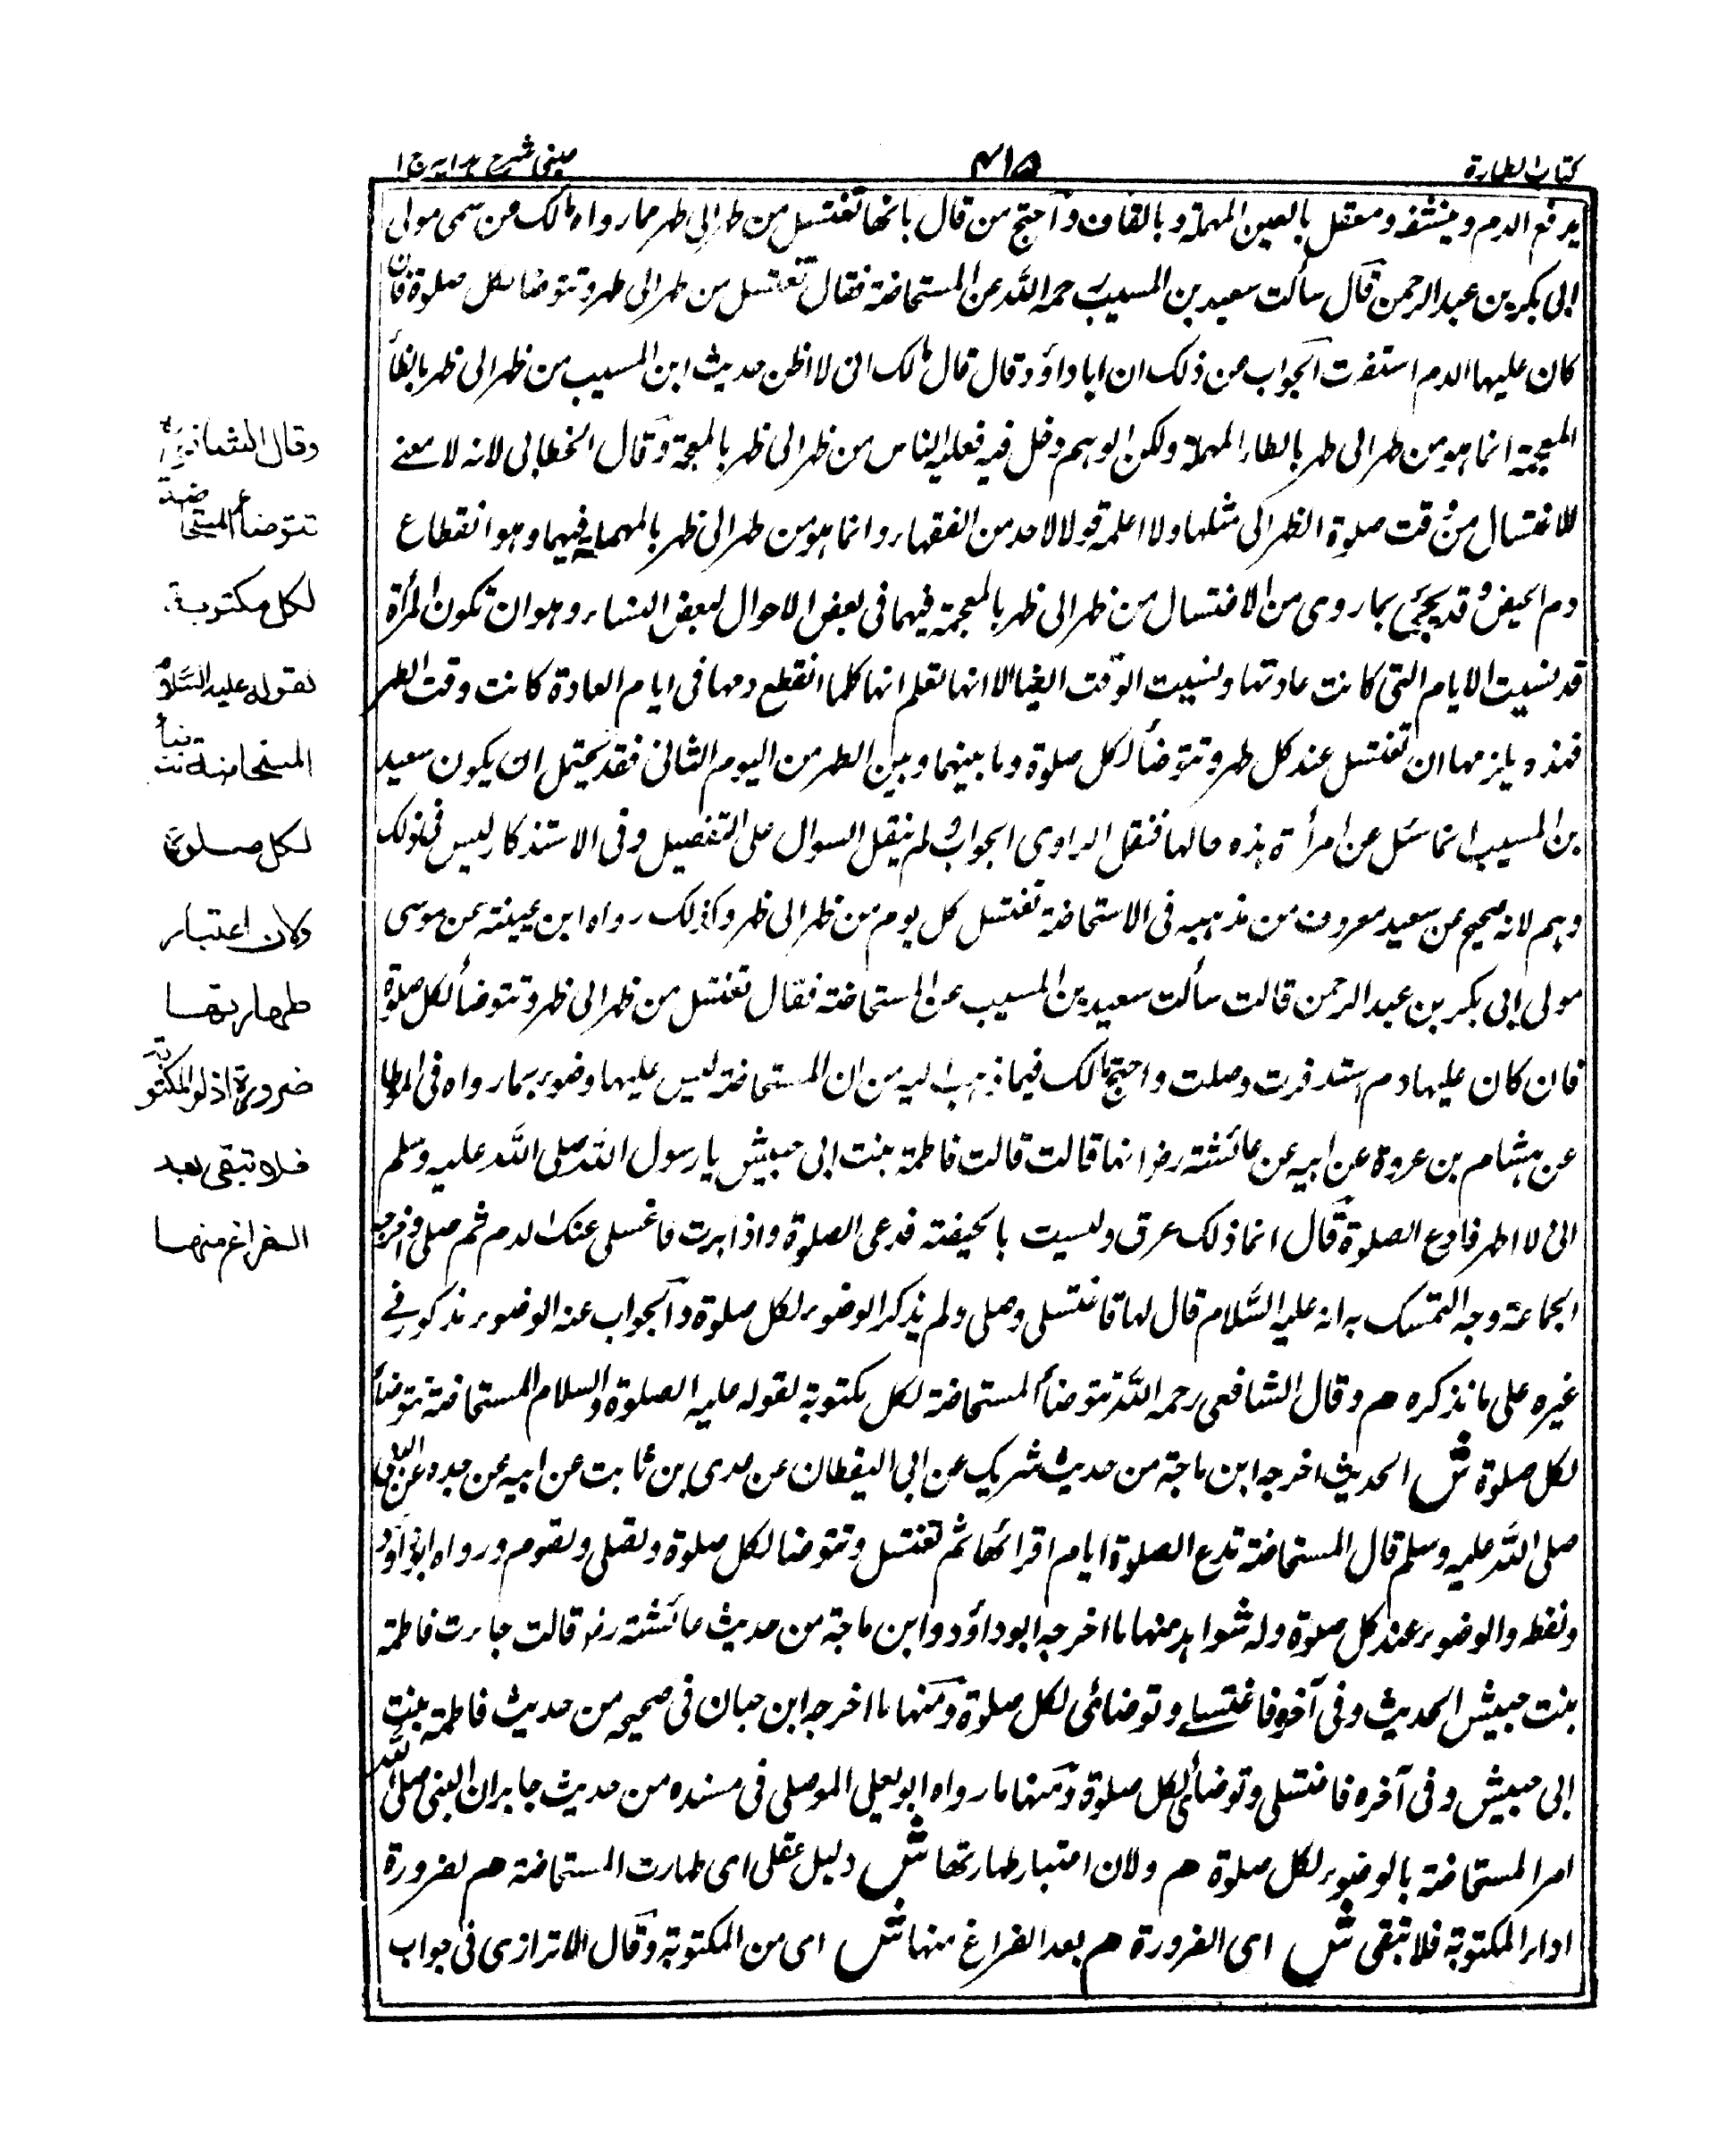 كتاب الطهارة
٤١٥
عينى شرح هدايه ج ١
يدفع الدم وينشفه ومعقل بالعين المهملة وبالقاف واحتج من قال بانها تغتسل من طهر الى طهر بما رواه مالك عن سمى مولى
ابى بكر بن عبد الرحمن قال سألت سعيد بن المسيب رحمه الله عن المستحاضة فقال تغتسل من طهر الى طهر وتتوضأ لكل صلوة فان
كان عليها الدم استثفرت الجواب عن ذلك ان ابا داؤد قال قال مالك انى لا اظن حديث ابن المسيب من ظهر الى ظهر بالظاء
المعجمة انما هو من طهر الى طهر بالطاء المهملة ولكن الوهم دخل فيه فقلبه الناس من ظهر الى ظهر بالمعجمة وقال الخطابى لانه لا معنے
للاغتسال من وقت صلوة الظهر الى مثلها ولا اعلمه قولا لاحد من الفقهاء وانما هو من طهر الى طهر بالمهملة فيهما وهو انقطاع
دم الحيض وقد يجئ بما روى من الاغتسال من ظهر الى ظهر بالمعجمة فيهما فى بعض الاحوال لبعض النساء وهو ان تكون المرأة
قد نسيت الايام التى كانت عادتها ونسيت الوقت ايضا الا انها تعلم انها كلما انقطع دمها فى ايام العادة كانت وقت الظهر
فهذه يلزمها ان تغتسل عند كل طهر وتتوضأ لكل صلوة وما بينهما وبين الطهر من اليوم الثانى فقد يحتمل ان يكون سعيد
بن المسيب انما سئل عن امرأة هذه حالها فنقل الراوى الجواب ولم ينقل السوال على التفصيل وفى الاستذكار ليس فى ذلك
وهم لانه صحيح عن سعيد معروف من مذهبه فى الاستحاضة تغتسل كل يوم من ظهر الى ظهر وكذلك رواه ابن عيينة عن موسى
مولى ابى بكر بن عبد الرحمن قالت سألت سعيد بن المسيب عن المستحاضة فقال تغتسل من ظهر الى ظهر وتتوضأ لكل صلوة
فان كان عليها دم استدفرت وصلت واحتج مالك فيما ذهب اليه من ان المستحاضة ليس عليها وضوء بما رواه فى الموطا
عن هشام بن عروة عن ابيه عن عائشة رض انها قالت قالت فاطمة بنت ابى حبيش يا رسول الله صلى الله عليه وسلم
انى لا اطهر فادع الصلوة قال انما ذلك عرق وليست بالحيضة فدعى الصلوة واذا ادبرت فاغسلى عنك الدم ثم صلى واخرجه
الجماعة وجه التمسك به انه عليه السلام قال لها فاغتسلى وصلى ولم يذكر الوضوء لكل صلوة والجواب عنه الوضوء مذكور فے
غيره على ما نذكره هم وقال الشافعى رحمه الله تتوضأ المستحاضة لكل مكتوبة لقوله عليه الصلوة والسلام المستحاضة تتوضأ
لكل صلوة ش الحديث اخرجه ابن ماجة من حديث شريك عن ابى اليقظان عن عدى بن ثابت عن ابيه عن جده عن النبى
صلى الله عليه وسلم قال المستحاضة تدع الصلوة ايام اقرائها ثم تغتسل وتتوضا لكل صلوة وتصلى وتصوم ورواه ابو داؤد
ولفظه والوضوء عند كل صلوة وله شواهد منها ما اخرجه ابو داؤد وابن ماجة من حديث عائشة رض قالت جاءت فاطمة
بنت حبيش الحديث وفى آخره فاغتسلے وتوضائى لكل صلوة ومنها ما اخرجه ابن حبان فى صحيحه من حديث فاطمة بنت
ابى حبيش وفى آخره فاغتسلى وتوضأى لكل صلوة ومنها ما رواه ابو يعلى الموصلى فى مسنده من حديث جابر ان النبى صلى الله
امر المستحاضة بالوضوء لكل صلوة هم ولان اعتبار طهارتها ش دليل عقلى اى طهارت المستحاضة هم لضرورة
اداء المكتوبة فلا تبقى ش اى الضرورة هم بعد الفراغ منها ش اى من المكتوبة وقال الاترازى فى جواب
وقال الشافعى
تتوضأ المستحاضة
لكل مكتوبة
لقوله عليه السلام
المستحاضة تتوضأ
لكل صلوة
ولان اعتبار
طهارتها
ضرورة اداء المكتوبة
فلا تبقى بعد
الفراغ منها